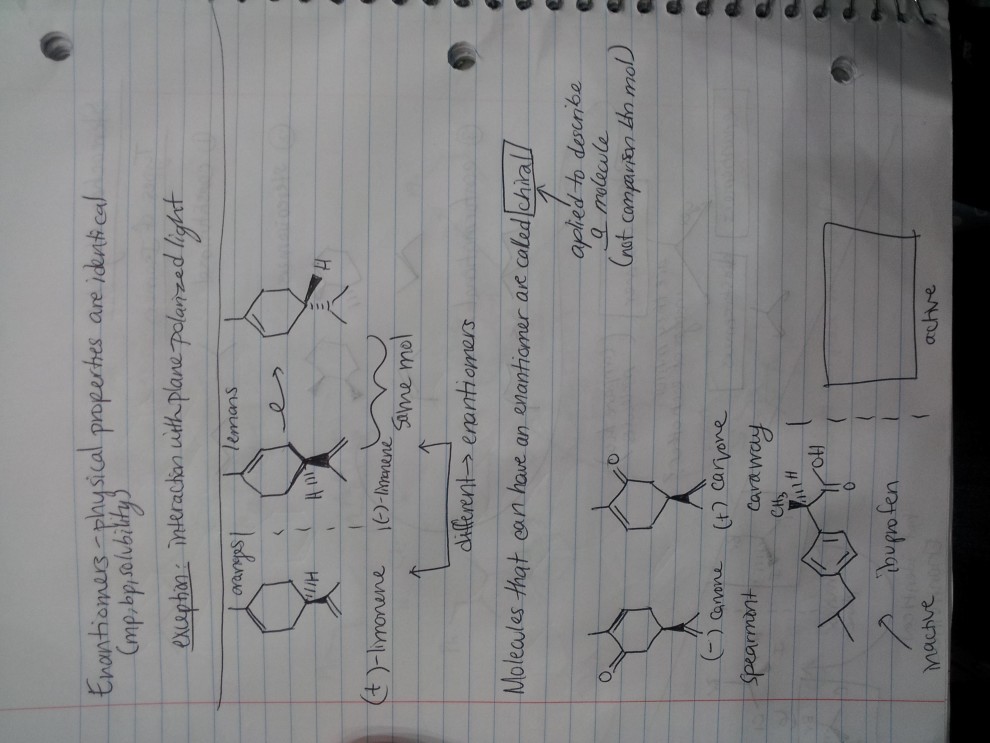 Enantiomers - physical properties are identical
(mp, bp, solubility)
exception: interaction with plane-polarized light
oranges | lemons
H H H
(+)-limonene | (-)-limonene
same mol
different → enantiomers
Molecules that can have an enantiomer are called chiral
aplied to describe
a molecule
(not comparison btn mol)
O O
(-) carvone (+) carvone
spearmint caraway
CH3 H
OH
O
ibuprofen
inactive active